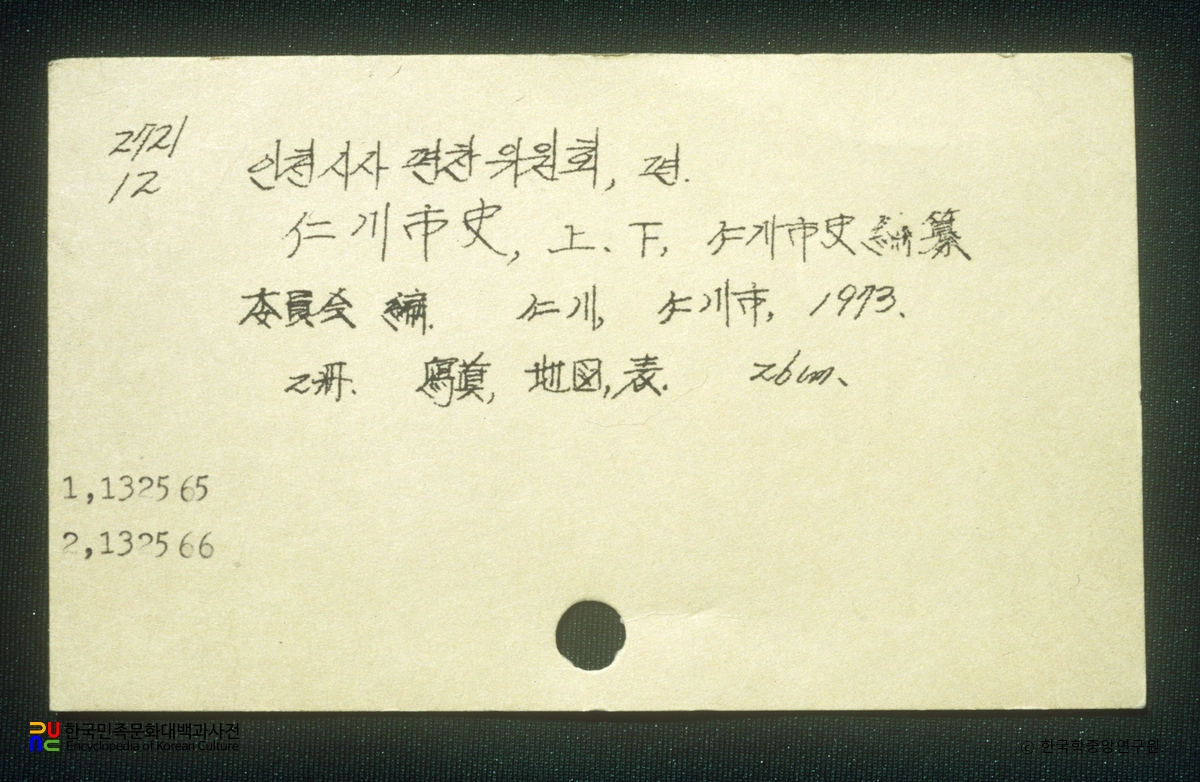 2721
12
인천시사 편찬 위원회, 편.
仁川市史, 上、下, 仁川市史編纂
委員会 編. 仁川, 仁川市, 1973.
2冊. 寫眞, 地図, 表. 26cm.
1,132565
2,132566
한국민족문화대백과사전
Encyclopedia of Korean Culture
© 한국학중앙연구원